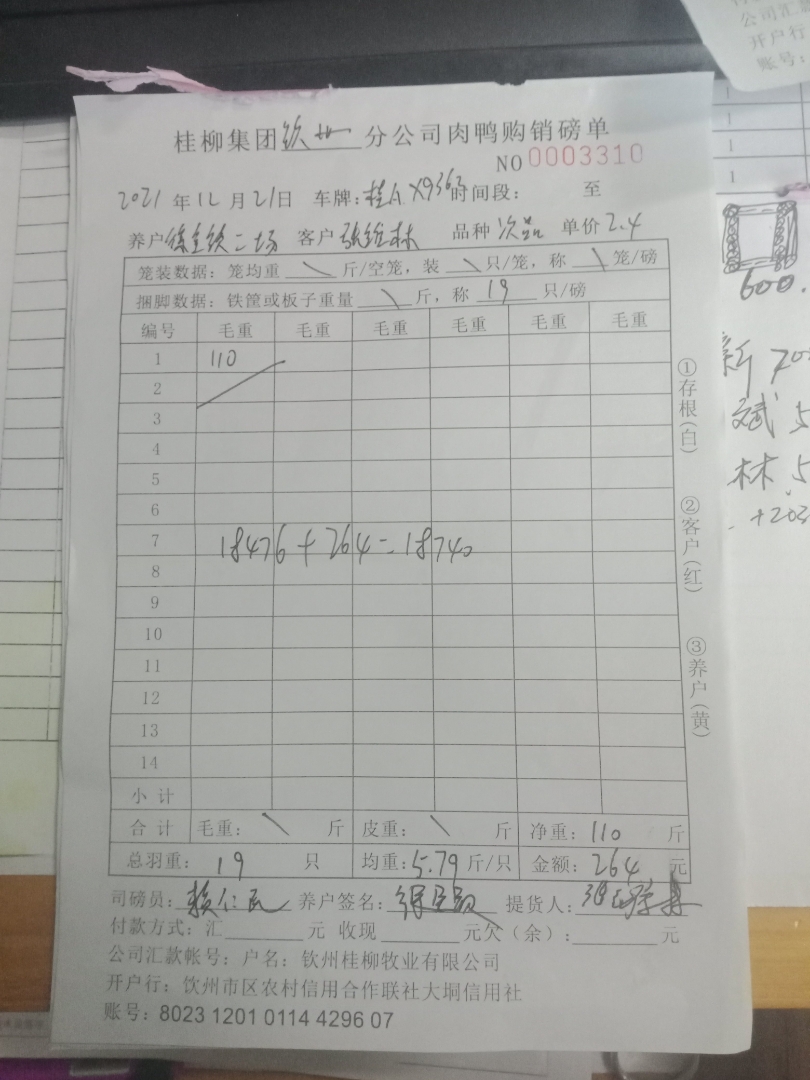 桂柳集团钦州分公司肉鸭购销磅单
NO 0003310
2021年12月21日 车牌:桂A X9363时间段: 至
养户 二场 客户 张 林 品种 次品 单价 2.4
笼装数据: 笼均重 \ 斤/空笼, 装 \ 只/笼, 称 \ 笼/磅
捆脚数据: 铁筐或板子重量 \ 斤, 称 19 只/磅
编号 毛重 毛重 毛重 毛重 毛重 毛重
1 110
2
3
4
5
6
7
18476+264=18740
8
9
10
11
12
13
14
小计
合计 毛重: \ 斤 皮重: \ 斤 净重: 110 斤
总羽重: 19 只 均重: 5.79 斤/只 金额: 264 元
司磅员: 赖仁民 养户签名: 提货人:
付款方式: 汇 元 收现 元欠(余): 元
公司汇款帐号: 户名: 钦州桂柳牧业有限公司
开户行: 钦州市区农村信用合作联社大垌信用社
账号: 8023 1201 0114 4296 07
①存根(白)
②客户(红)
③养户(黄)
公司汇款
开户行
账号:
1
1
1
600.
新 70
斌 5
林 5
+203